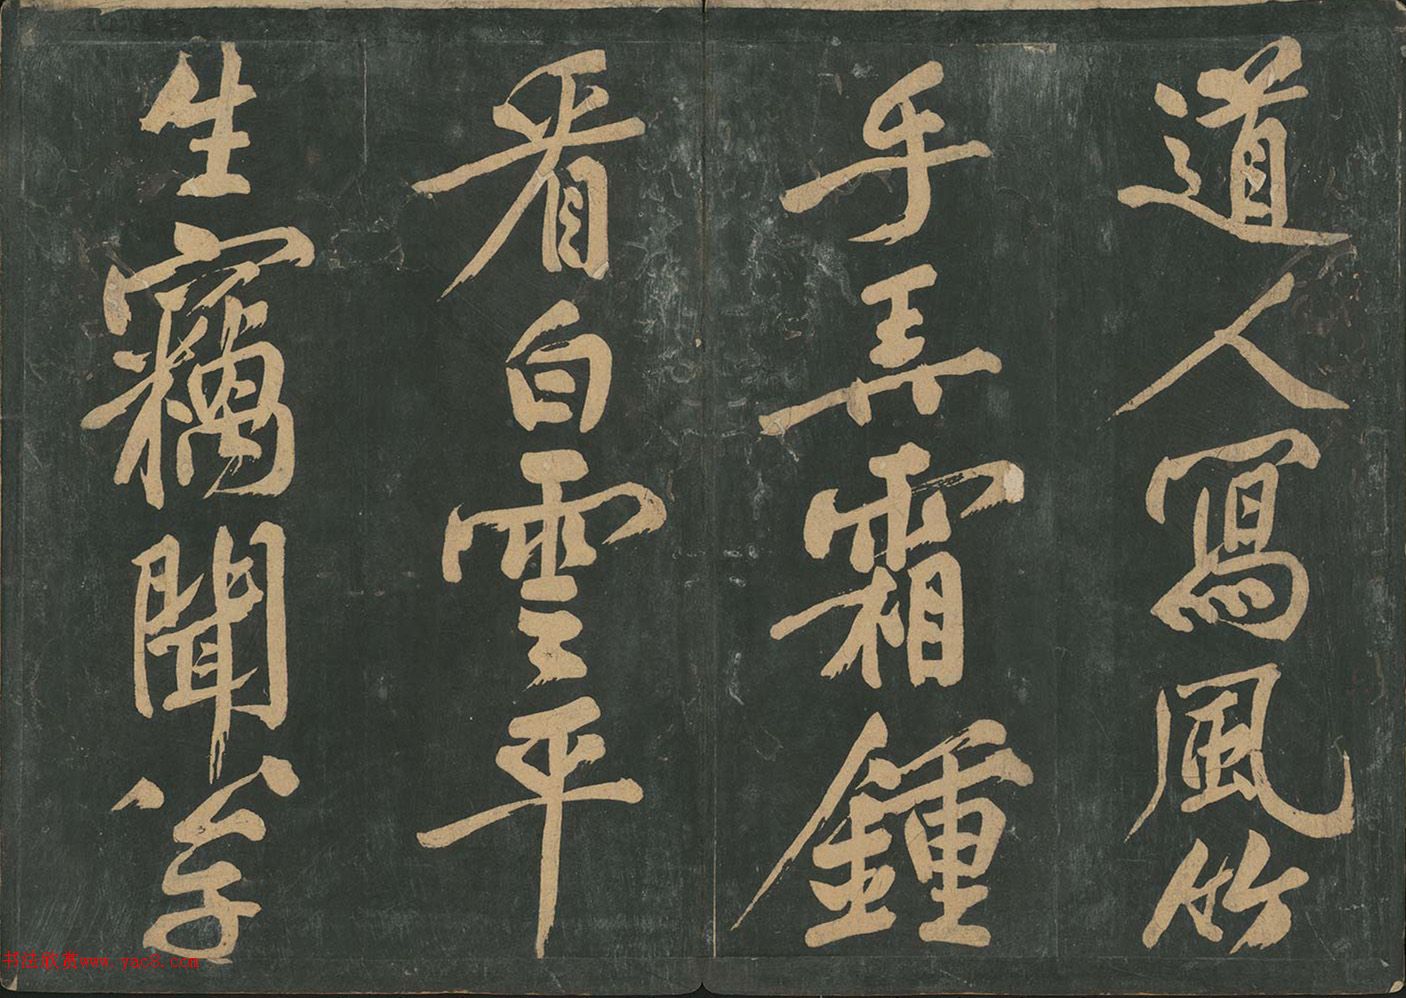 道人寫風竹
手弄霜鍾
看白雲平
生竊聞公子
书法欣赏www.yac8.com